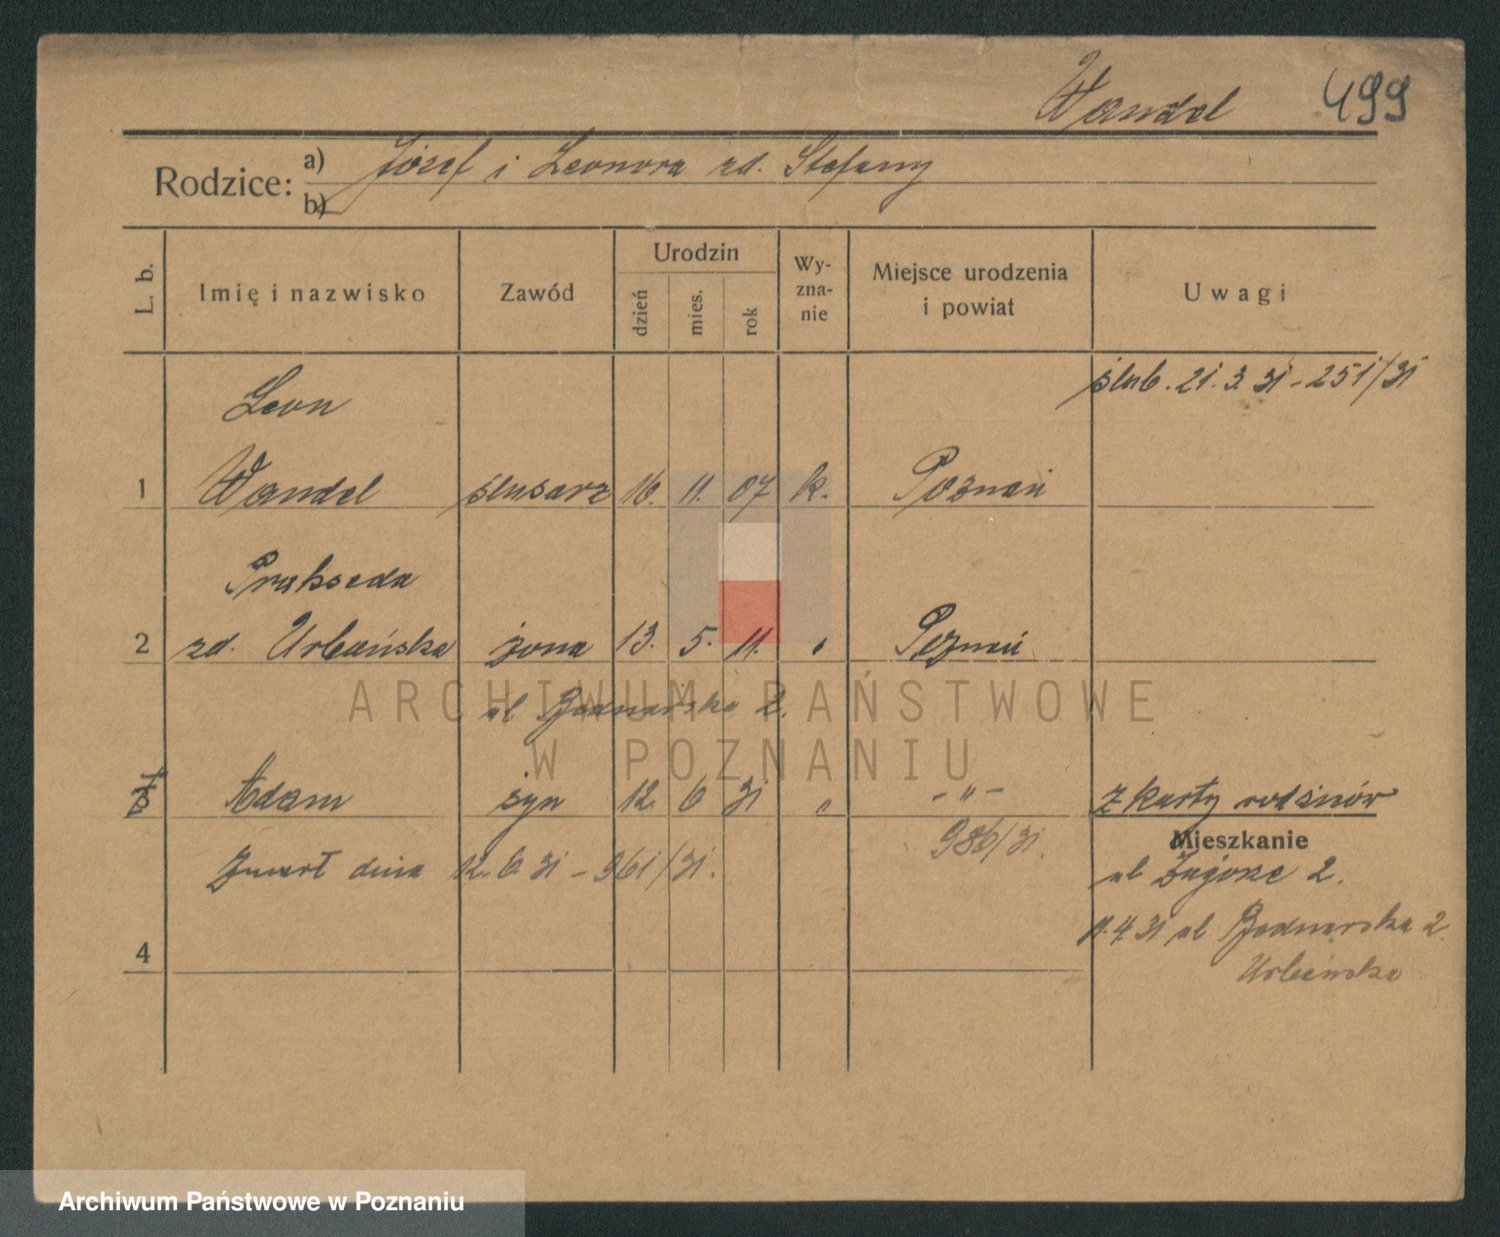 Wandel 499
Rodzice: a) Józef i Leonora zd. Stefany
b)
L. b. Imię i nazwisko Zawód Urodzin dzień mies. rok Wy-zna-nie Miejsce urodzenia i powiat Uwagi
ślub. 21. 3. 31 - 251/31
Leon
1 Wandel ślusarz 16. 11. 07 k. Poznań
Prakseda
2 zd. Urbańska żona 13. 5. 11. " Poznań
ul Bednarska 2.
3 Adam syn 12. 6 31 " - " - z karty rodziców
986/31.
Mieszkanie
Zmarł dnia 12. 6 31 - 961/31. ul Zagórze 2.
11. 4. 31 ul Bednarska 2.
4
Urbańska
ARCHIWUM PAŃSTWOWE
W POZNANIU
Archiwum Państwowe w Poznaniu